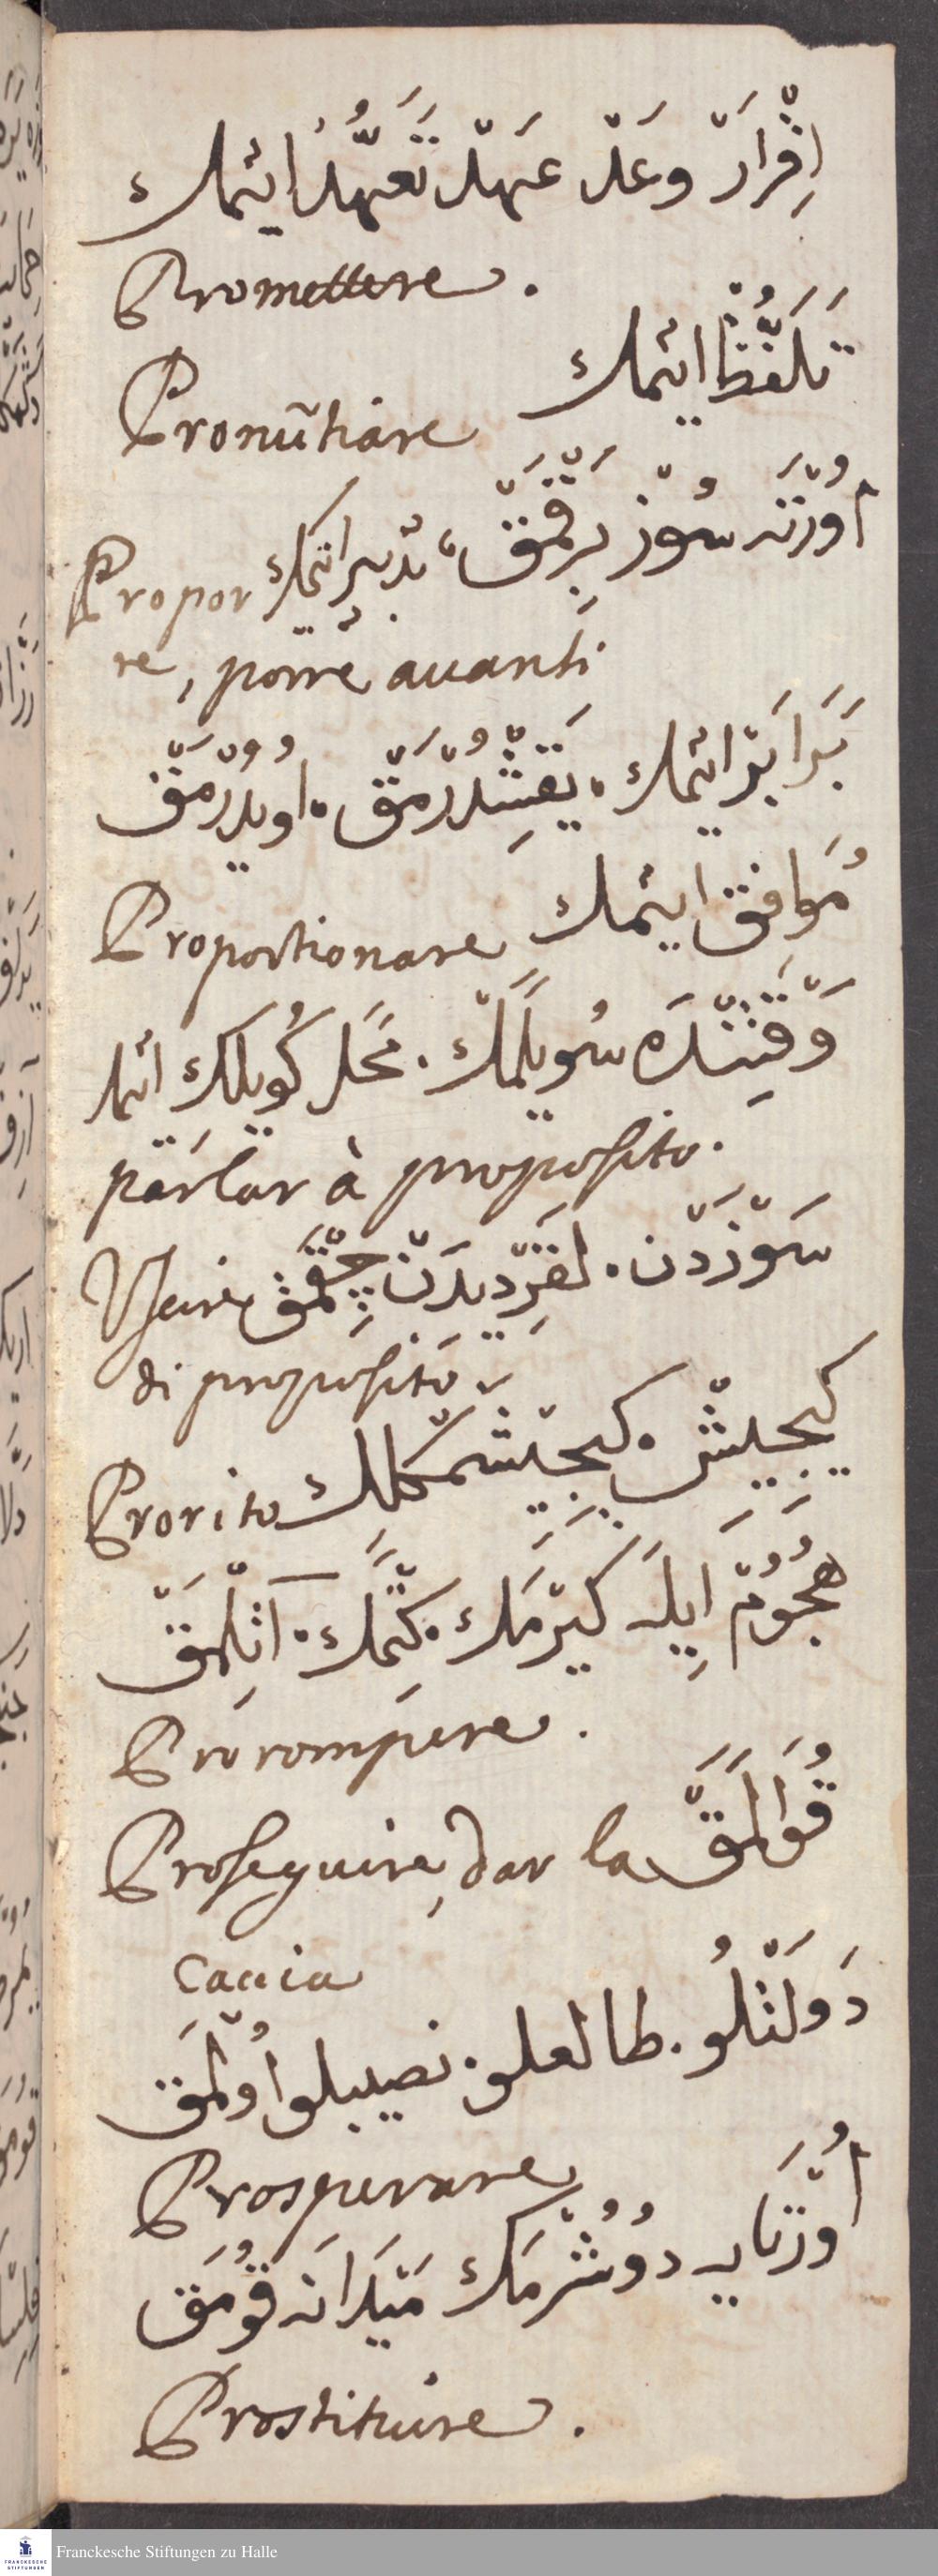 اِقْرَارْ وَعَدْ عَهَدْ تَعَهُّدْ ايتمك
Promettere.
تَلَفُّظْ ايتمك
Pronũtiare
اُورْتَه سُوزْ بِرَقْمَقْ، تدبير اتمك Propor
re, porre auanti
بَرَابَرْ ايتمك. يَقِشْدُرْمَقْ. اُويْدُرْمَقْ
مُوَافِق ايتمك Proportionare
وَقْتِنْدَه سُويلَمَكْ. مَحَلْ كُويلك
parlar à proposito.
سَوْزدَنْ. لَقِرْديدَنْ چِقْمَقْ Vscire
di proposito
كيجِيِشْ. كيجِيشمكلك Prorito
هُجُومْ اِيلَه كيرْمَك. كِتْمَك. آتِلْمَقْ
Prorompere.
قُوَالَمَقْ Proseguire, dar la
Caccia
دَولَتْلُو. طالعلو. نصيبلو اُولْمَق
Prosperare
اُورْتَايه دُوشُرْمَك مَيْدَانَه قُومَق
Prostituire.
Franckesche Stiftungen zu Halle
FRANCKESCHE
STIFTUNGEN